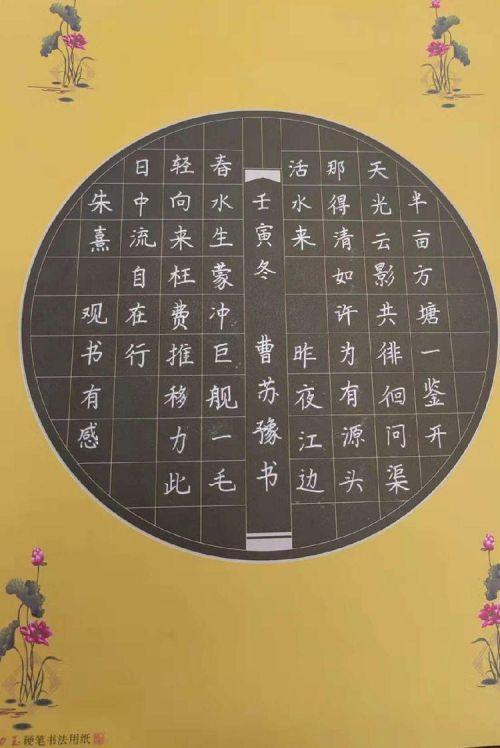 半亩方塘一鉴开
天光云影共徘徊问渠
那得清如许为有源头
活水来 昨夜江边
壬寅冬 曹苏豫书
春水生蒙冲巨舰一毛
轻向来枉费推移力此
日中流自在行
朱熹 观书有感
玉 硬笔书法用纸